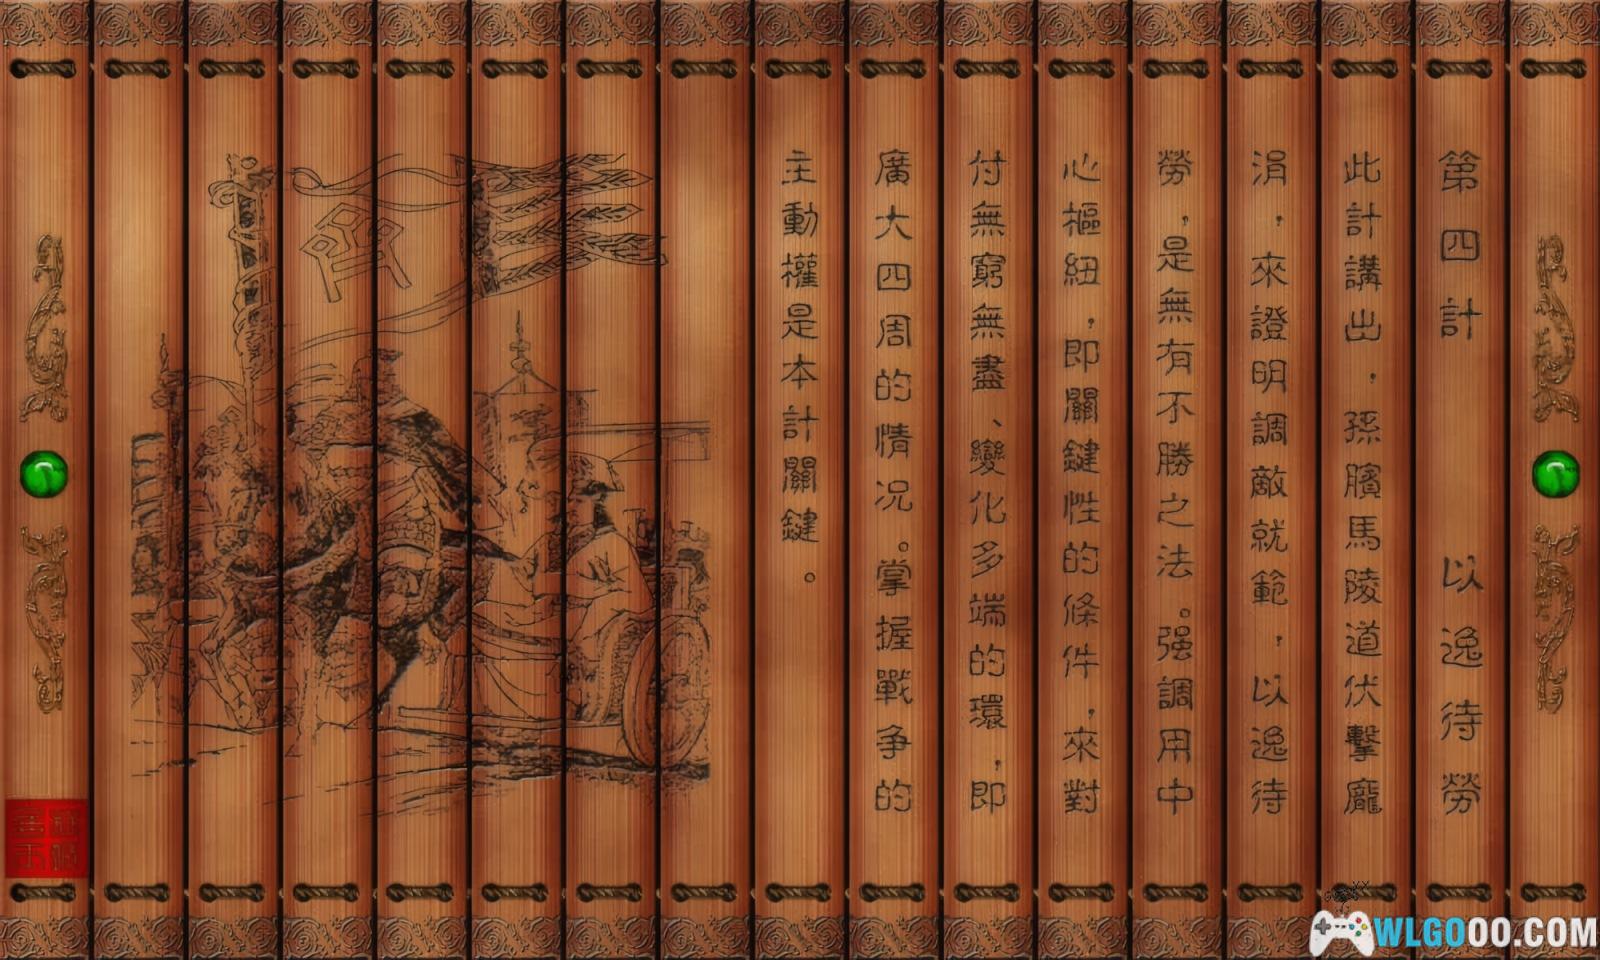 第四計 以逸待勞
此計講出，孫臏馬陵道伏擊龐
涓，來證明調敵就範，以逸待
勞，是無有不勝之法。强調用中
心樞紐，即關鍵性的條件，來對
付無窮無盡、變化多端的環，即
廣大四周的情况。掌握戰争的
主動權是本計關鍵。
齊
WLGOOO.COM